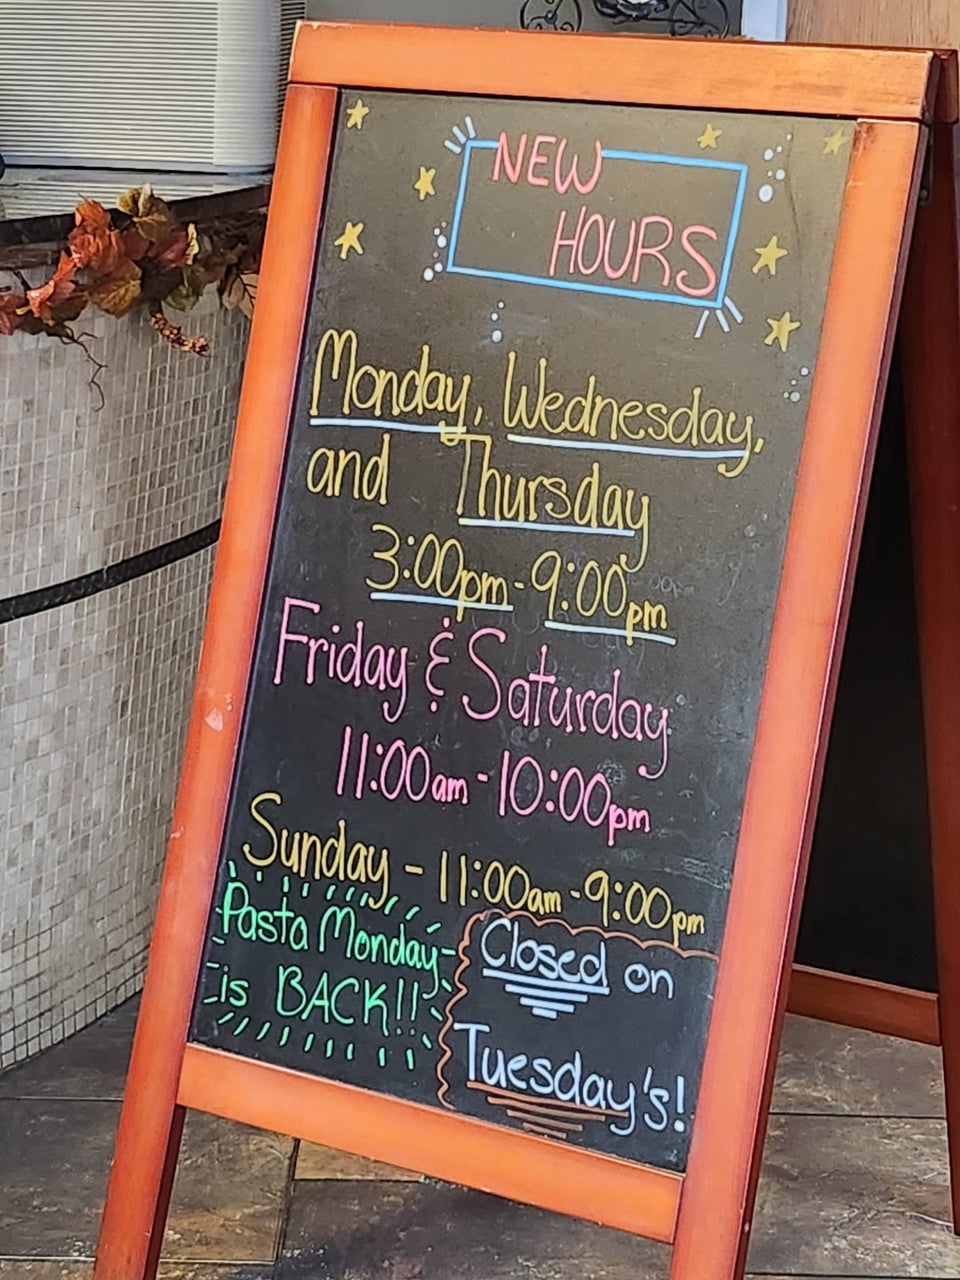 NEW
HOURS
Monday, Wednesday,
and Thursday
3:00pm - 9:00pm
Friday & Saturday
11:00am - 10:00pm
Sunday - 11:00am - 9:00pm
Pasta Monday
is BACK!!
Closed on
Tuesday's!